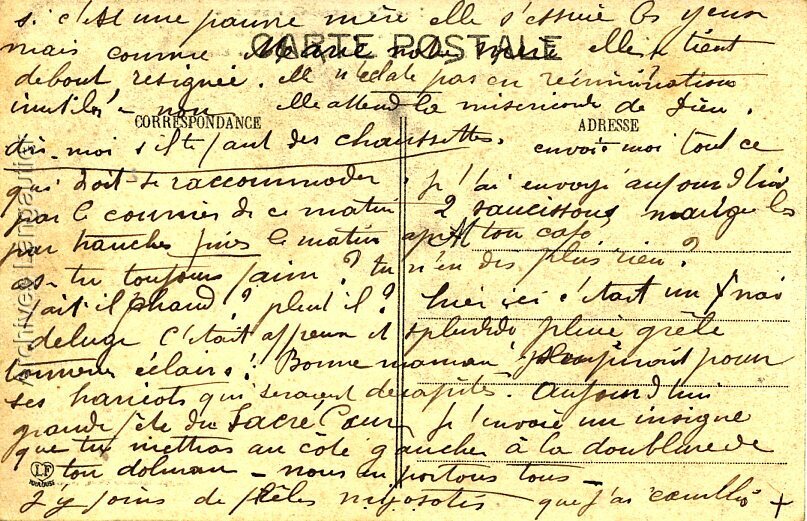 si c'est une pauvre mère elle s'essuie les yeux
mais comme Marie notre mère elle se tient
CARTE POSTALE
debout resignée. elle n'éclate pas en récriminations
inutiles – non elle attend la misericorde de Dieu.
CORRESPONDANCE
ADRESSE
dis-moi s'il te faut des chaussettes. envoie-moi tout ce
qui doit se raccommoder. je t'ai envoyé aujourd'hui
par le courrier de ce matin 2 saucissons mange les
par tranches fines le matin après ton café
as-tu toujours faim? tu n'en dis plus rien?
fait-il chaud? pleut-il? hier ici c'était un vrai
deluge c'était affreux et splendide pluie grêle
tonnerre éclairs! Bonne maman pour
ses haricots qui seraient decapités. Aujourd'hui
grande fête du Sacré Coeur je t'envoie un insigne
que tu mettras au côté gauche à la doublure de
ton dolman – nous en portons tous –
LF
TOULOUSE
J'y joins de myosotis que j'ai cueillis +
Archives Lengautier